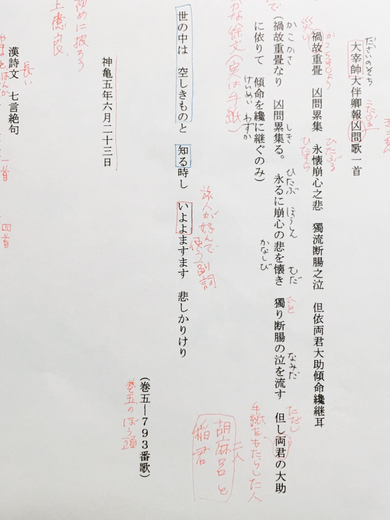 だざいのそち
大宰帥大伴卿報凶問歌一首
禍故重畳　凶問累集　永懐崩心之悲　獨流断腸之泣　但依両君大助傾命纔継耳
かこかさ　しき　ひたぶ　ほうしん　むだ　なみだ
(禍故重畳なり　凶問累集る。永るに崩心の悲を懐き　獨り断腸の泣を流す　但し両君の大助
けいめい　わずか　かなしび
に依りて　傾命を纔に継ぐのみ)
手紙をもたらした人
二人
胡麻呂と
稲君
旅人が好んで
使う副詞
世の中は　空しきものと　知る時し　いよよますます　悲しかりけり
(巻五―793番歌)
巻五のぼう頭
神亀五年六月二十三日
長い
漢詩文　七言絶句
一首
四首